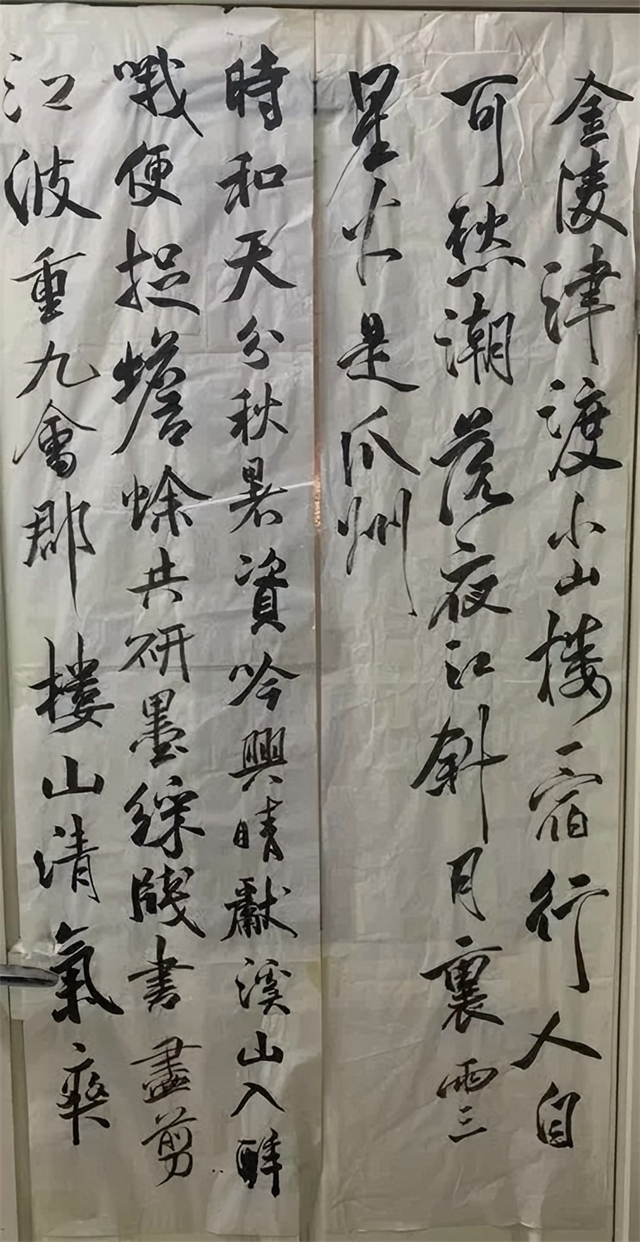 金陵津渡小山楼一宿行人自
可愁潮落夜江斜月裏兩三
星火是瓜州
時和天分秋暑資吟興晴獻溪山入醉
哦便捉蟾蜍共研墨綵牋書盡剪
江波重九會郡樓山清氣爽